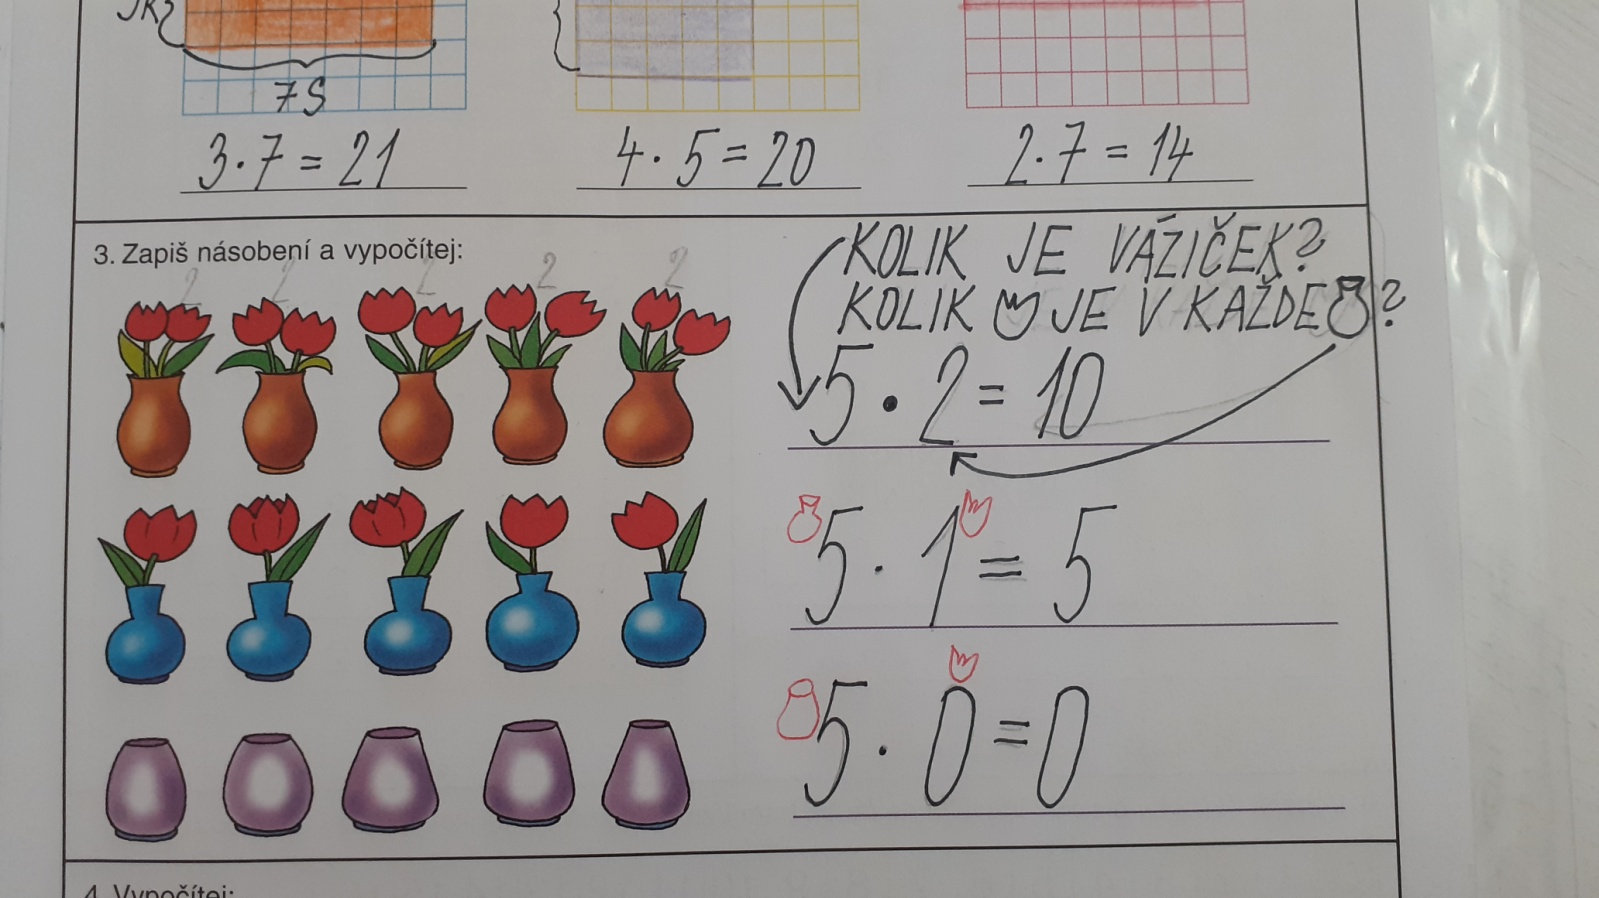 7S
3·7=21
4·5=20
2·7=14
3. Zapiš násobení a vypočítej:
2 2 2 2 2
KOLIK JE VÁZIČEK?
KOLIK JE V KAŽDÉ ?
5·2=10
5·1=5
5·0=0
4. Vypočítej: